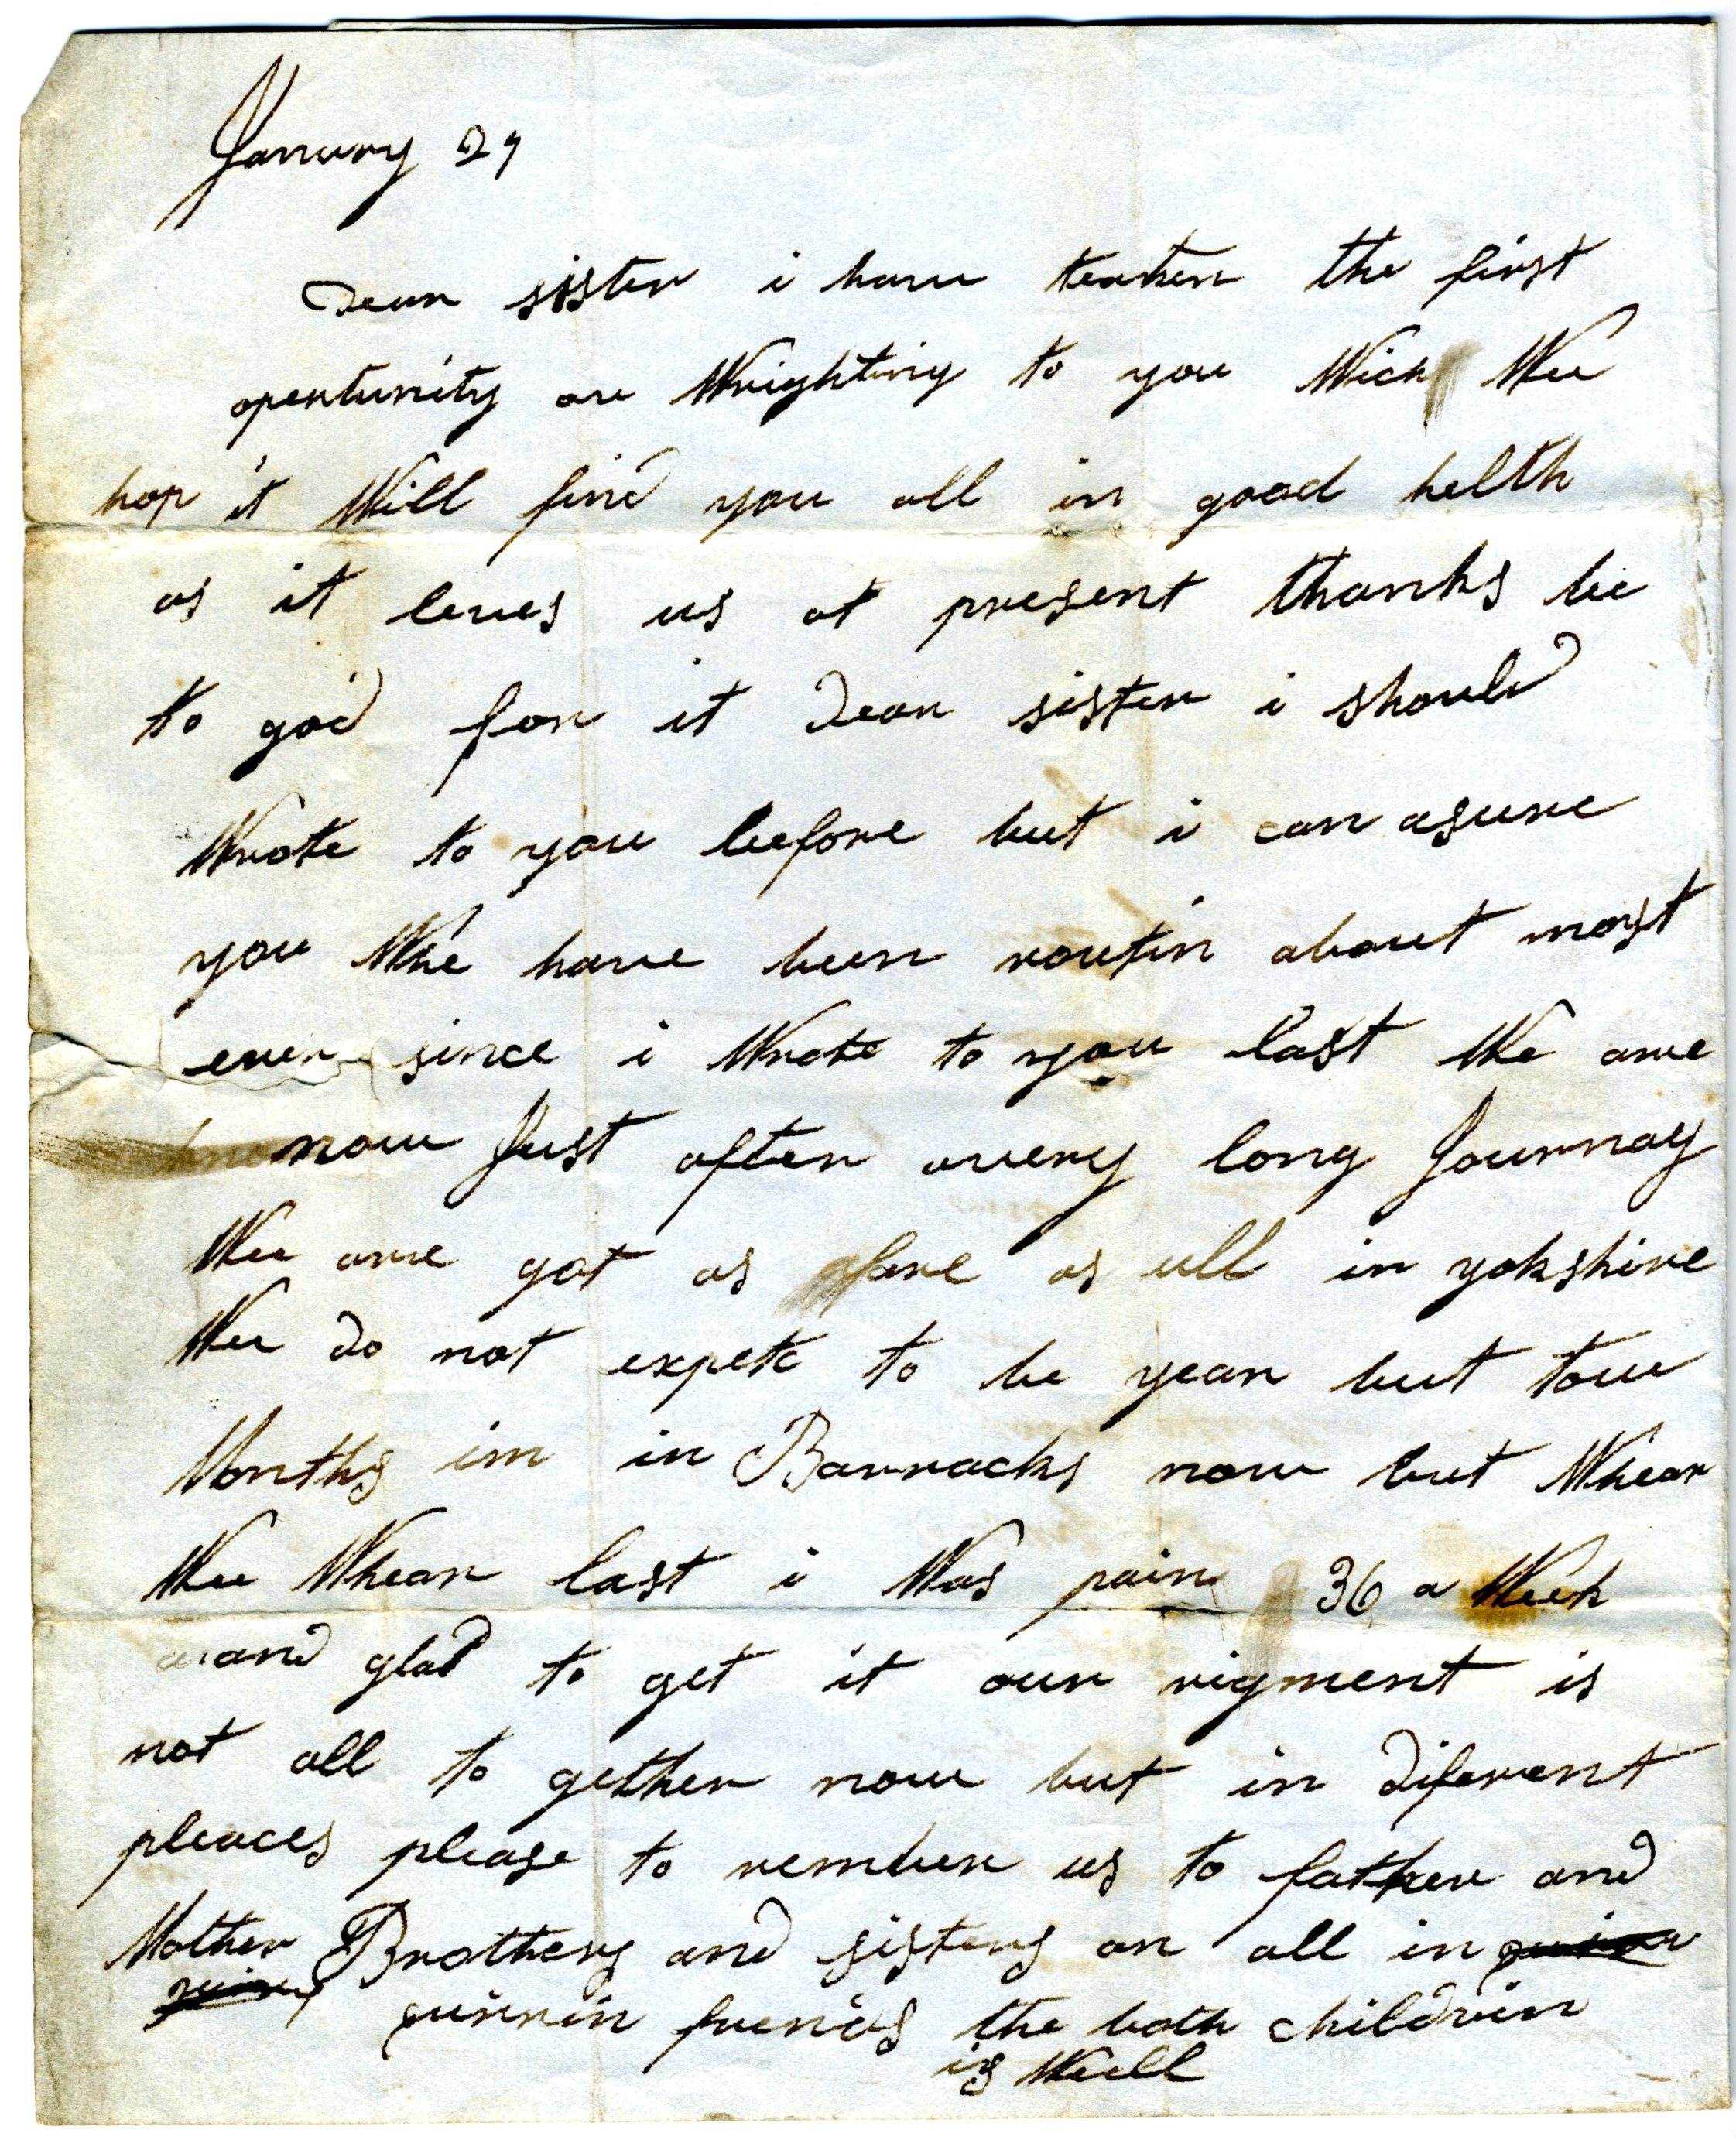 Janury 29
Dear sister i have teaken the first
opertunity on Wrighting to you Wich Wee
hop it Will find you all in good helth
as it leves us at present thanks be
to god for it Dear sister i should
Wrote to you before but i can asure
you Whe have been routin about most
ever since i Wrote to you last We are
now Just after avery long Journay
Wee are got as fare as ull in yokshire
Wee do not expete to be year but tow
Months im in Barracks now but Whear
Wee Whear last i Was pain 36 a Week
and glad to get it our rigment is
not all to gether now but in diferent
pleaces please to rember us to father and
Mother Brothers and sisters an all in
quirrin friends the both childrin
is Well